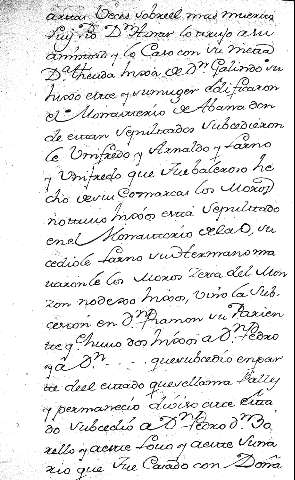 Dn Aznar lo trujo a su
y lo Caso con su nieta
Da theuda hija de Dn Galindo su
hijo este y su muger edificaron
el Monasterio de Abana don
de estan sepultados subcedieron
le Unifredo y Arnaldo y
y Unifredo que fue baleroso he
cho de sus Comarcas los Moros
no tuvo hijos está sepultado
en el Monasterio de la O, su
cediole su Hermano ma
taronle los Moros zerca del Mon
zon no dexo hijos, vino la sub
cession en Dn Ramon su Parien
te qe hubo dos hijos a Dn Pedro
y a Dn ..... que subcedio en par
te de el estado que se llama Pally
y permanecio diviso este esta
do subcedio a Dn Pedro Dn Bo
rello y a este y a este
que fue Casado con Doña